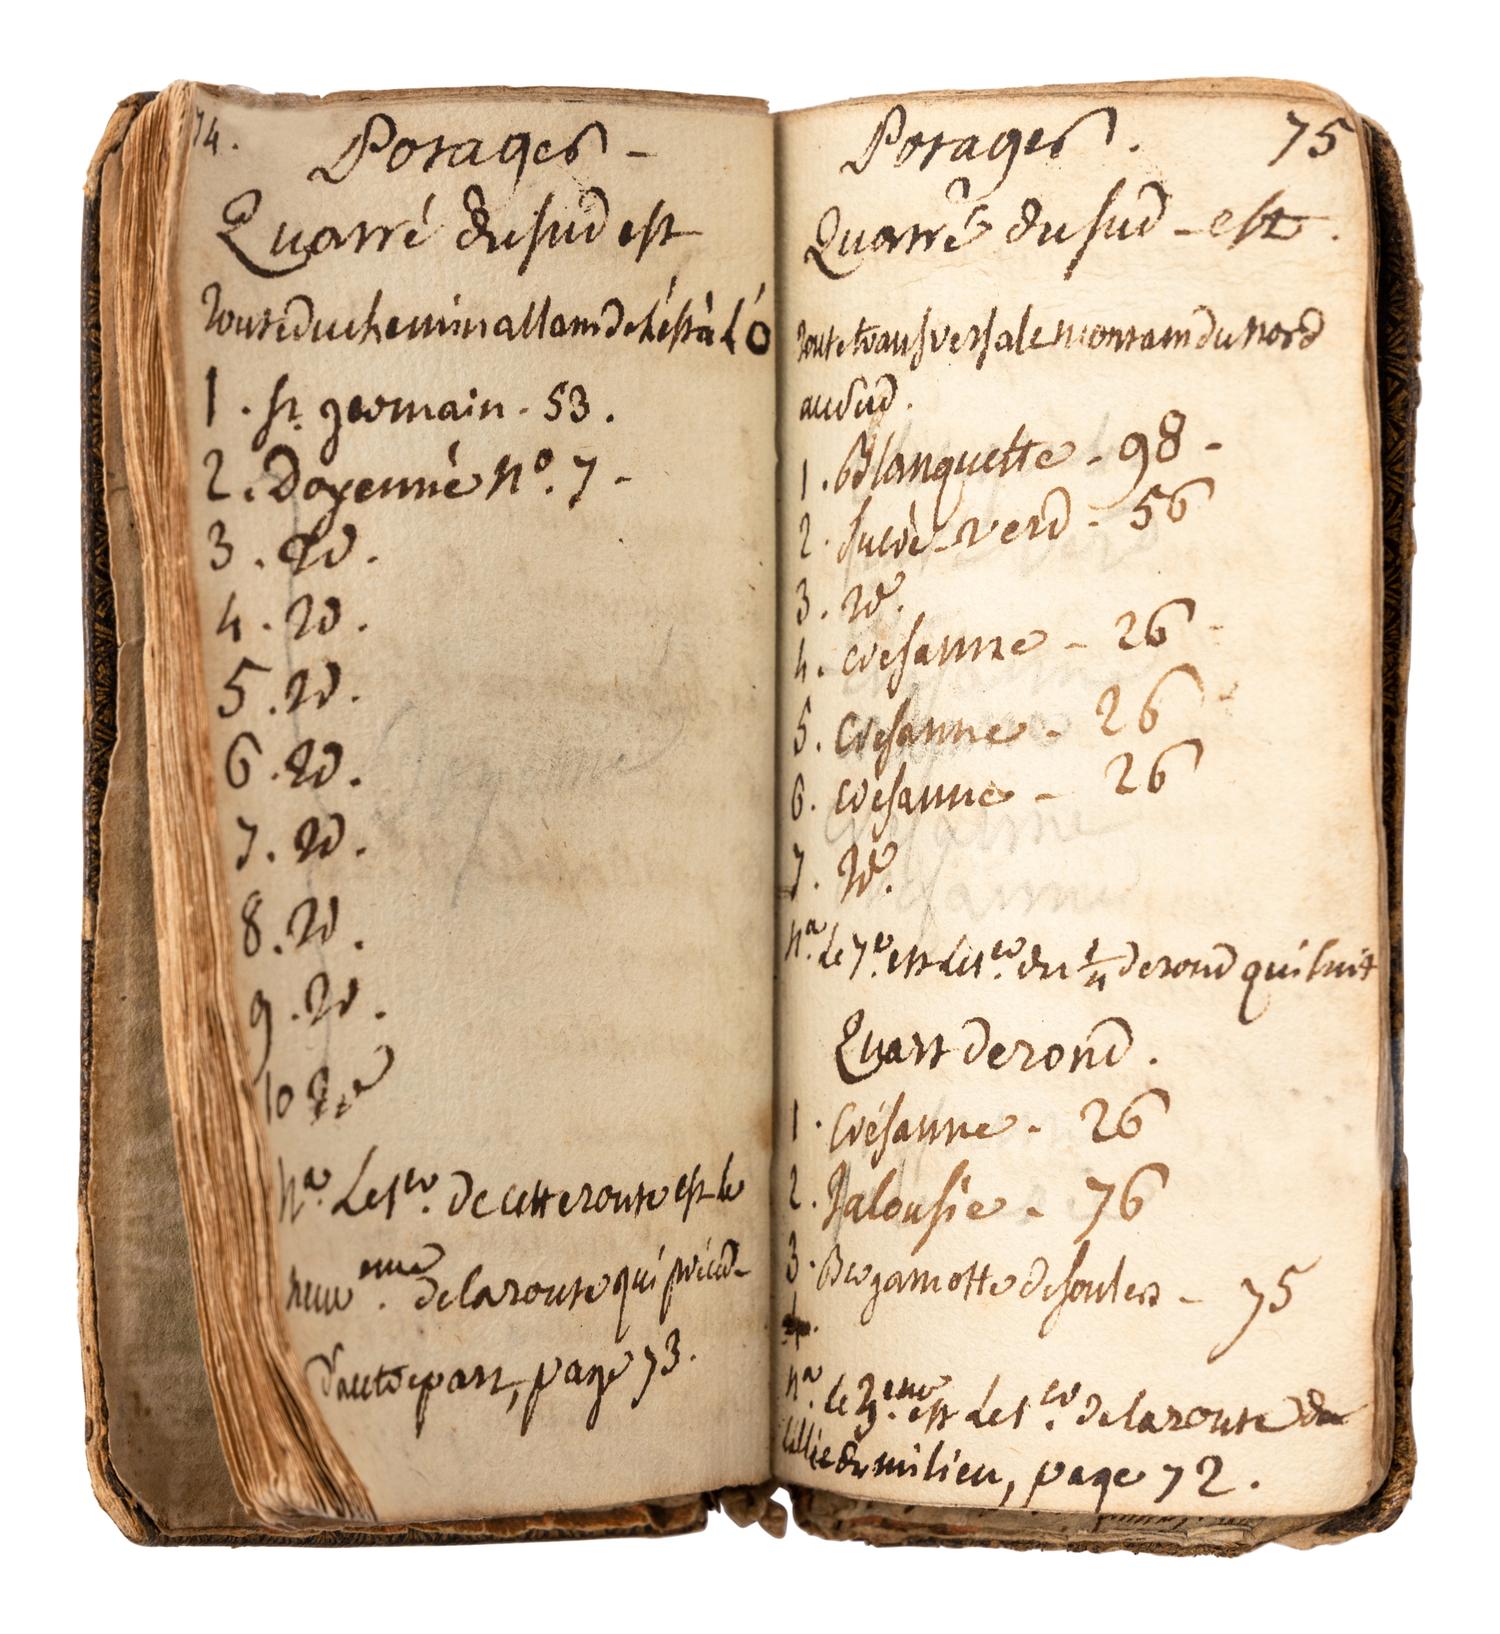 74.
Potages -
Quarré du sud est
Route du chemin allant de L'est à L'o
1 . st germain - 53 .
2 . Doyenné N° . 7 -
3 . Id .
4 . Id .
5 . Id .
6 . Id .
7 . Id .
8 . Id .
9 . Id .
10 Id
Na. Le 1er. de cette route est le
neuv eme. de la route qui précéd-
d'autre part, page 73.
Potages . 75
Quarré du sud - est .
Route transversale montant du nord
au sud .
1 . Blanquette - 98 -
2 . sucré - verd - 56
3 . Id .
4 . crésanne - 26 -
5 . Crésanne - 26
6 . crésanne - 26
7 . Id .
Na. Le 7e. est Le 1er. du 1/4 de rond qui suit
Quart de rond .
1 . Crésanne - 26
2 . Jalousie - 76
3 . Bergamotte de soulers - 75
4 .
Na. Le 3eme. est Le 1er. de la route de
L'allée du milieu, page 72 .